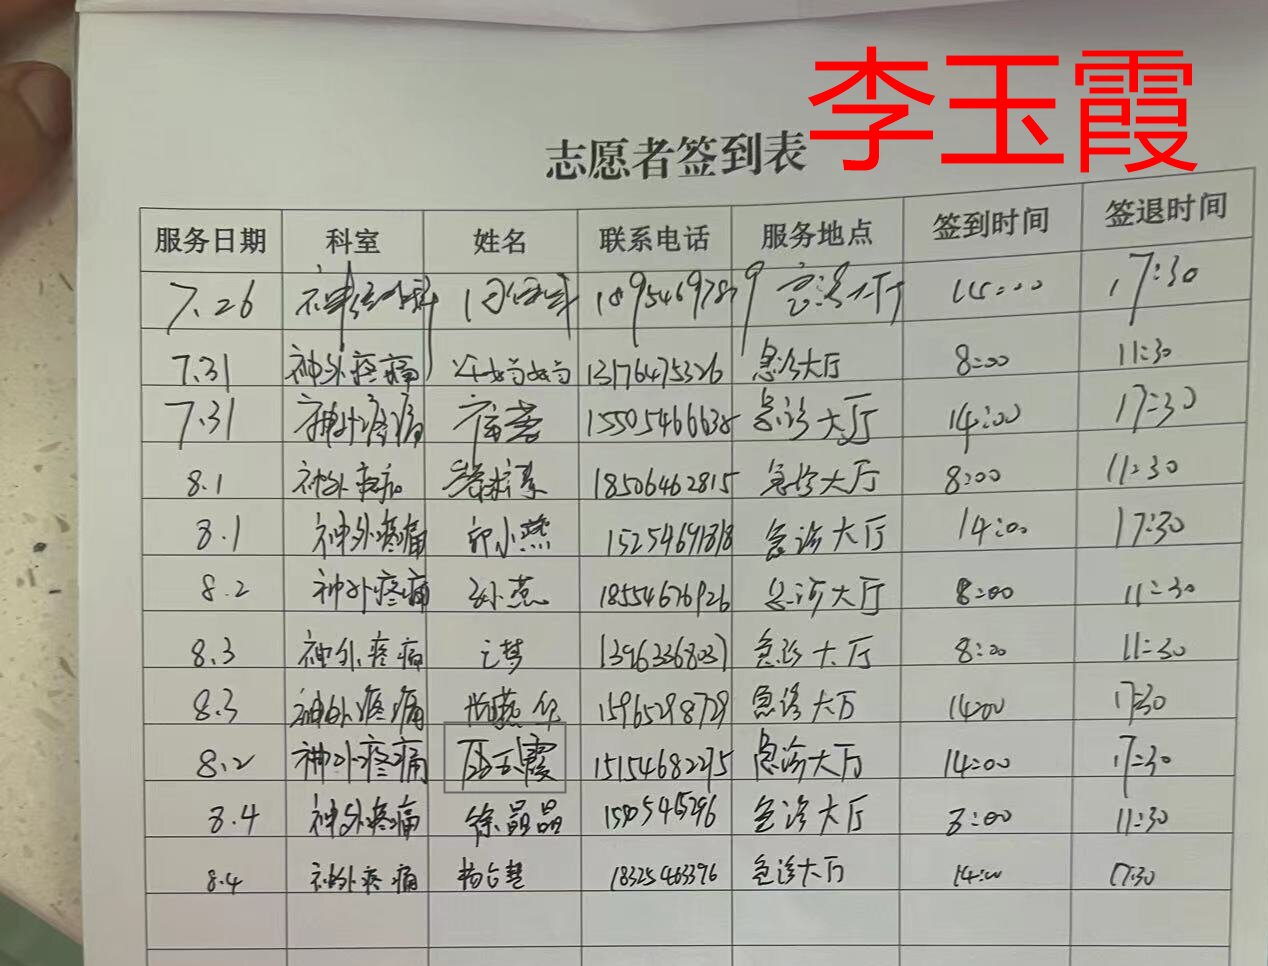 李玉霞
志愿者签到表
服务日期 科室 姓名 联系电话 服务地点 签到时间 签退时间
7.26 神经外科 18954697879 急诊大厅 14:00 17:30
7.31 神外疼痛 13176475326 急诊大厅 8:00 11:30
7.31 神外疼痛 15505466638 急诊大厅 14:00 17:30
8.1 神外疼痛 18506462815 急诊大厅 8:00 11:30
8.1 神外疼痛 郭小燕 15254691818 急诊大厅 14:00 17:30
8.2 神外疼痛 孙燕 18554676926 急诊大厅 8:00 11:30
8.3 神外疼痛 13963368037 急诊大厅 8:00 11:30
8.3 神外疼痛 15965298729 急诊大厅 14:00 17:30
8.2 神外疼痛 15154682275 急诊大厅 14:00 17:30
8.4 神外疼痛 徐晶晶 急诊大厅 8:00 11:30
8.4 神外疼痛 18325463396 急诊大厅 14:00 17:30